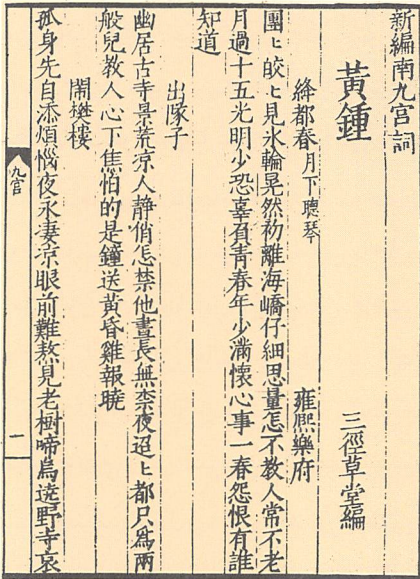 新編南九宮詞
三徑草堂編
黃鍾
絳都春月下聽琴　雍熙樂府
團〻皎〻見氷輪晃然初離海嶠仔細思量怎不教人常不老
月過十五光明少恐辜負青春年少滿懷心事一春怨恨有誰
知道
出隊子
幽居古寺景荒凉人静俏怎禁他晝長無柰夜迢〻都只為兩
般兒教人心下焦怕的是鐘送黃昏雞報曉
鬧樊樓
孤身先自添煩惱夜永凄凉眼前難熬見老樹啼烏遶野寺哀
九宮
一